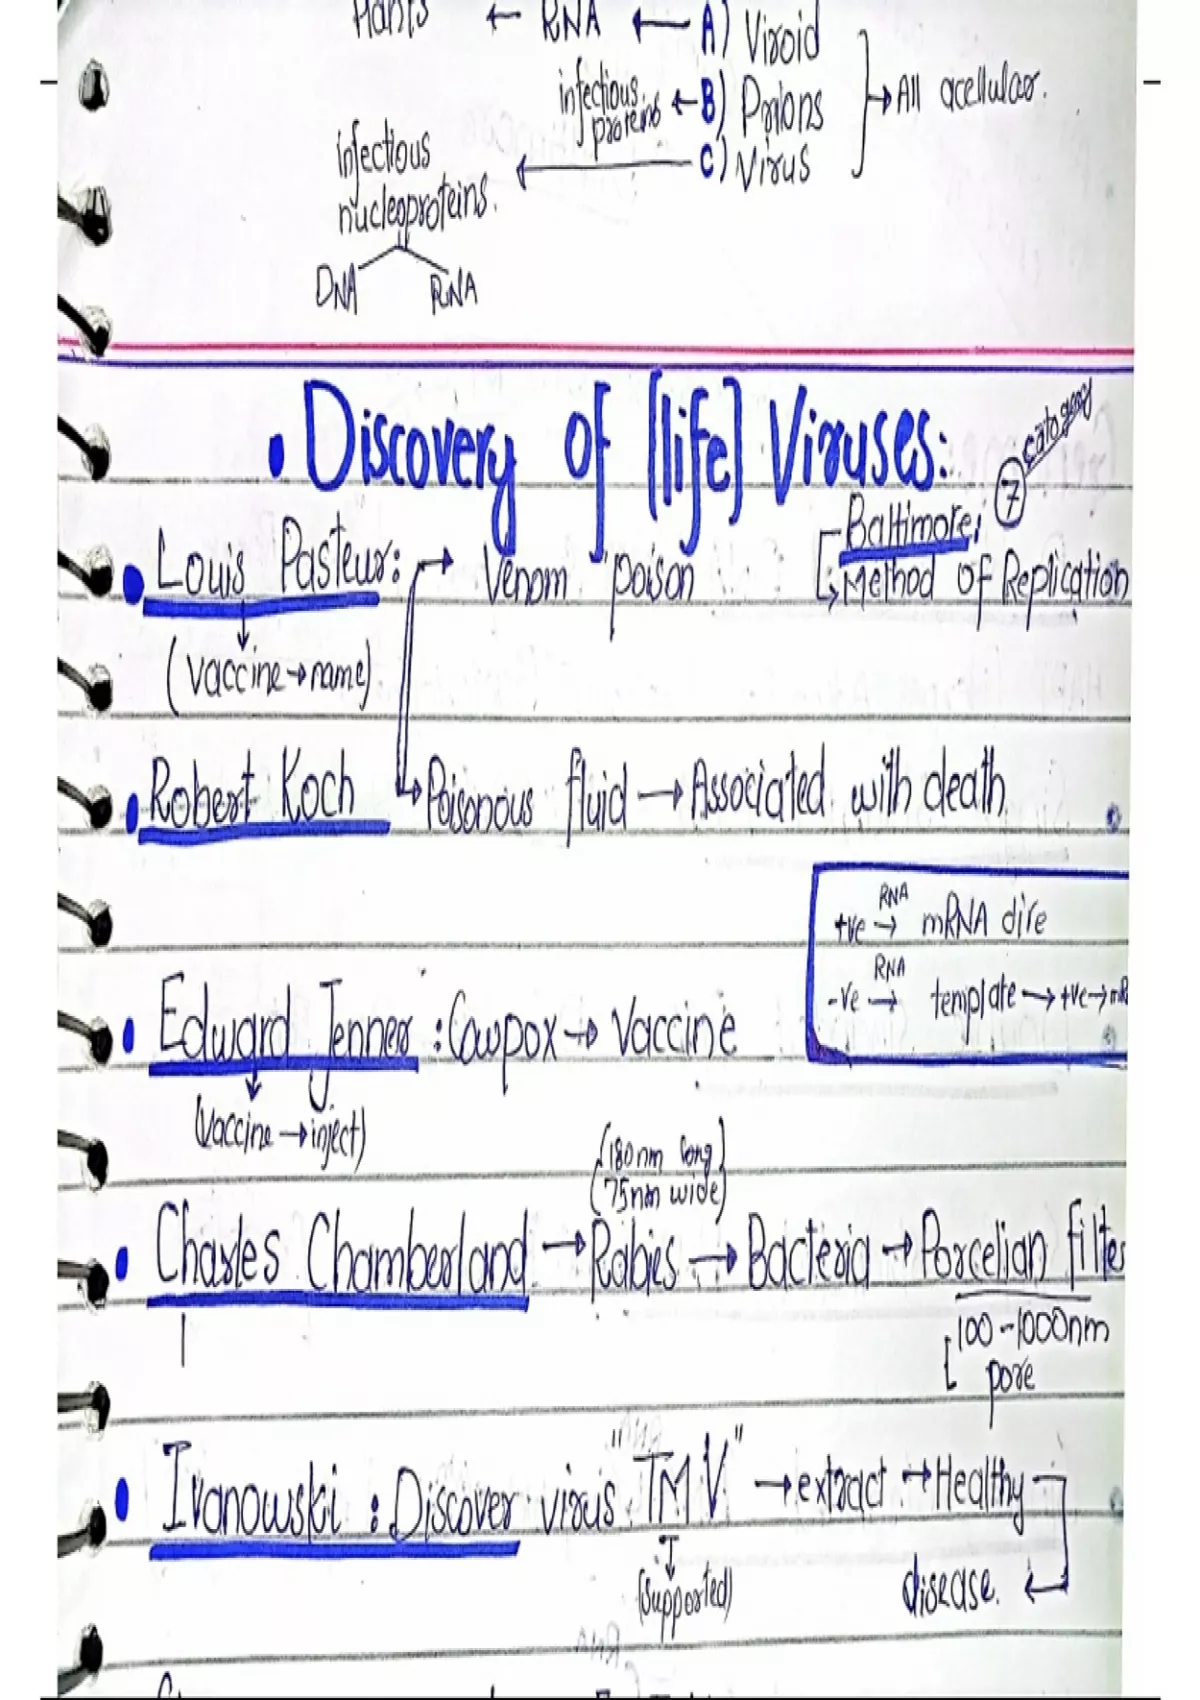 Plants ← RNA ← A) Viroid
infectious proteins ← B) Prions → All acellular.
infectious nucleoproteins. ← C) Virus
DNA RNA
• Discovery of [life] Viruses:
7 category
Baltimore,
→ Method of Replication
• Louis Pasteur: → Venom poison
(vaccine → name)
• Robert Koch → Poisonous fluid → Associated with death
+ve RNA → mRNA dire
-ve RNA → template → +ve → mR
• Edward Jenner : Cowpox → Vaccine
(Vaccine → inject)
(180nm long)
(75nm wide)
• Charles Chamberland → Rabies → Bacteria → Porcelian filter
100-1000nm
pore
• Ivanowski : Discover virus "TMV" → extract → Healthy
(supported)
disease.